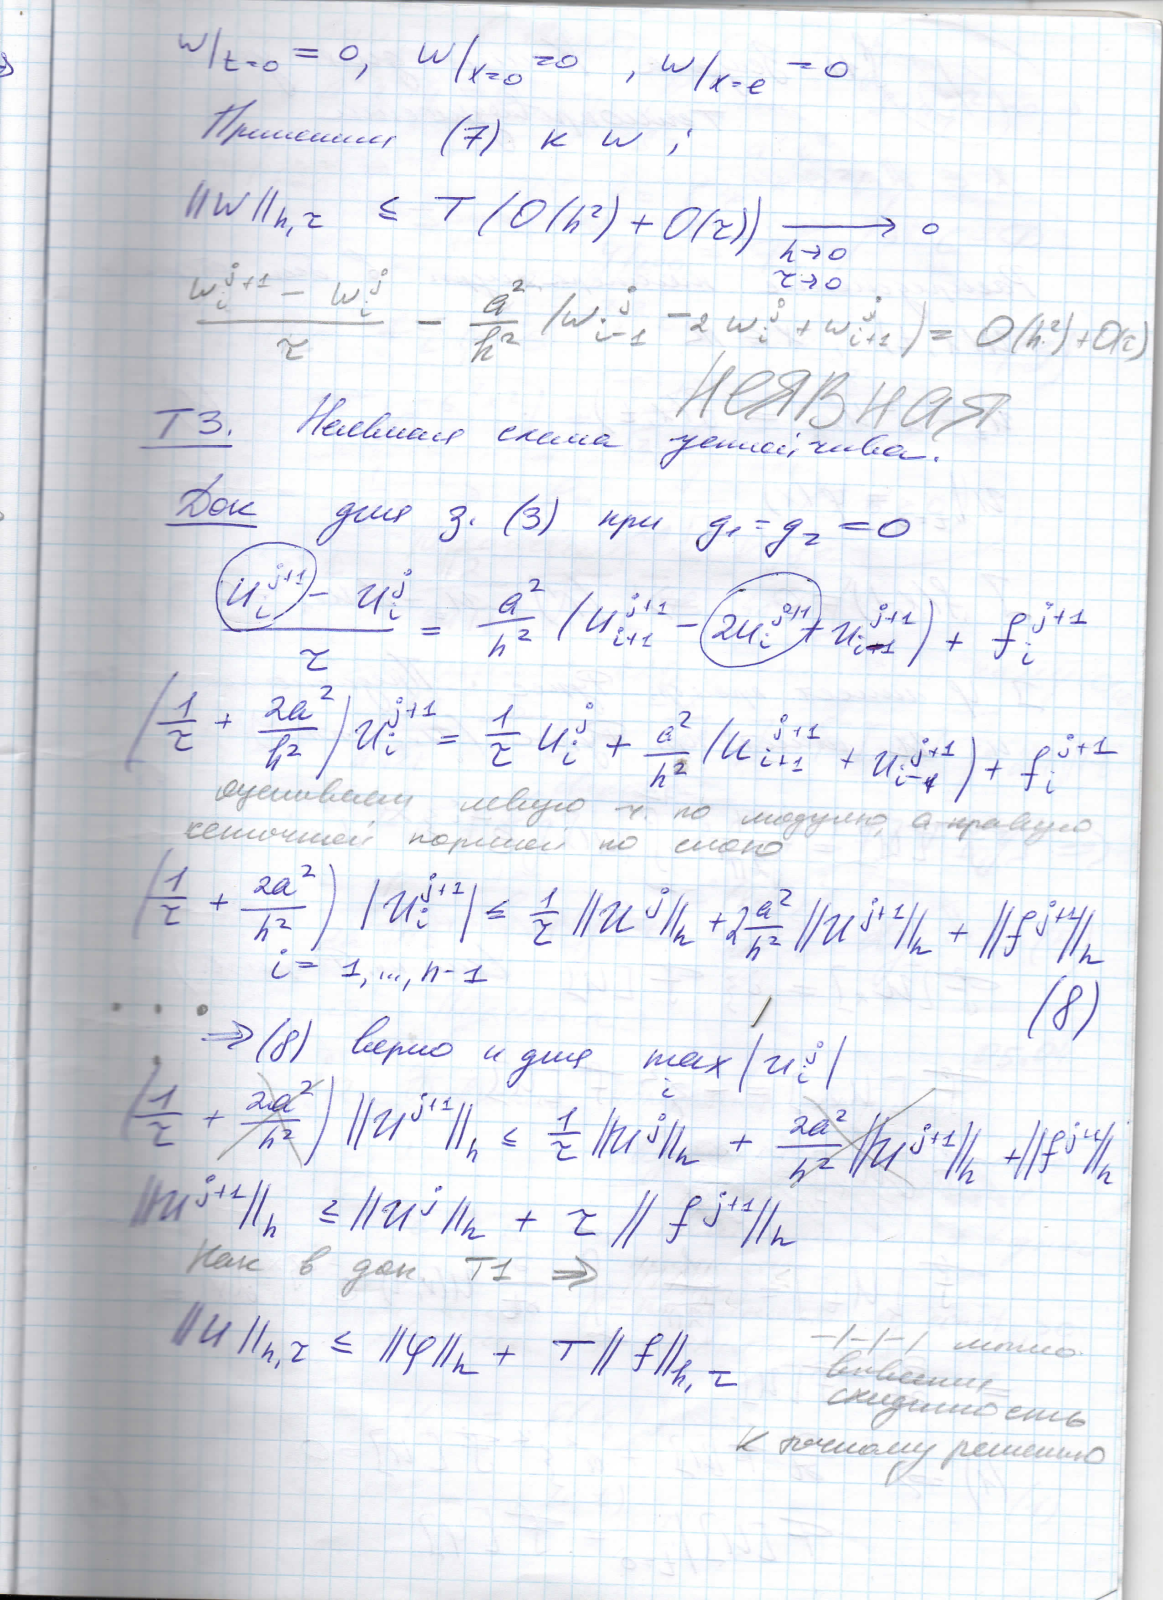 w|t=0 = 0, w|x=0 = 0, w|x=e = 0
Применим (7) к w;
||w||h,τ ≤ T(O(h²) + O(τ)) ⟶ 0
h→0
τ→0
(wᵢʲ⁺¹ - wᵢʲ)/τ - a²/h² (wᵢ₋₁ʲ - 2wᵢʲ + wᵢ₊₁ʲ) = O(h²) + O(τ)
НЕЯВНАЯ
Т3. Неявная схема устойчива.
Док для з. (3) при g₁ = g₂ = 0
(uᵢʲ⁺¹ - uᵢʲ)/τ = a²/h² (uᵢ₊₁ʲ⁺¹ - 2uᵢʲ⁺¹ + uᵢ₋₁ʲ⁺¹) + fᵢʲ⁺¹
(1/τ + 2a²/h²) uᵢʲ⁺¹ = 1/τ uᵢʲ + a²/h² (uᵢ₊₁ʲ⁺¹ + uᵢ₋₁ʲ⁺¹) + fᵢʲ⁺¹
оцениваем левую ч. по модулю, а правую
сеточной нормой по слою
(1/τ + 2a²/h²) |uᵢʲ⁺¹| ≤ 1/τ ||uʲ||h + 2 a²/h² ||uʲ⁺¹||h + ||fʲ⁺¹||h
i = 1,...,n-1
(8)
... ⇒ (8) верно и для max i |uᵢʲ|
(1/τ + 2a²/h²) ||uʲ⁺¹||h ≤ 1/τ ||uʲ||h + 2a²/h² ||uʲ⁺¹||h + ||fʲ⁺¹||h
||uʲ⁺¹||h ≤ ||uʲ||h + τ ||fʲ⁺¹||h
Как в док. Т1 ⇒
||u||h,τ ≤ ||φ||h + T||f||h,τ
-/-/-/ можно
вывести
сходимость
к точному решению